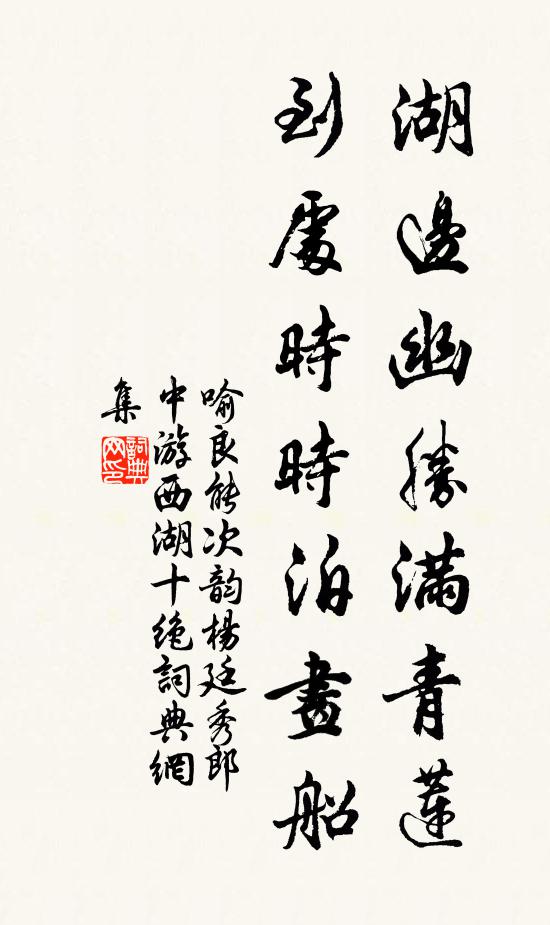 湖邊幽勝滿青蓮
到處時時泊畫船
喻良能次韵楊廷秀郎
中游西湖十絶詞典網
集
詞典
网印